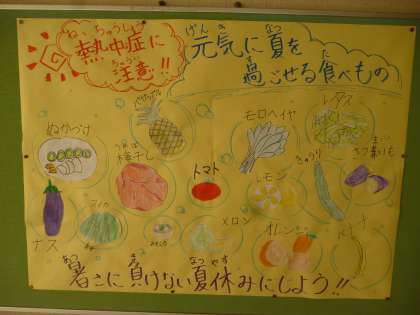 ねっちゅうしょう
熱中症に
ちゅうい
注意!!
げんき なつ
元気に夏を
す た
過ごせる食べもの
パイナップル
レタス
モロヘイヤ
ぬかづけ
うめぼ
梅干し
トマト
きゅうり
レモン
ナス
メロン
オレンジ
あつ ま なつやす
暑さに負けない夏休みにしよう!!